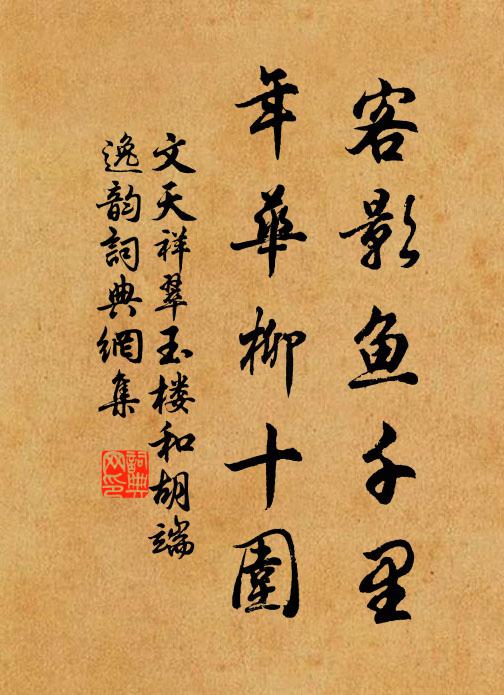 客影鱼千里
年華柳十圍
文天祥翠玉楼和胡端
逸韵詞典網集
詞典网印